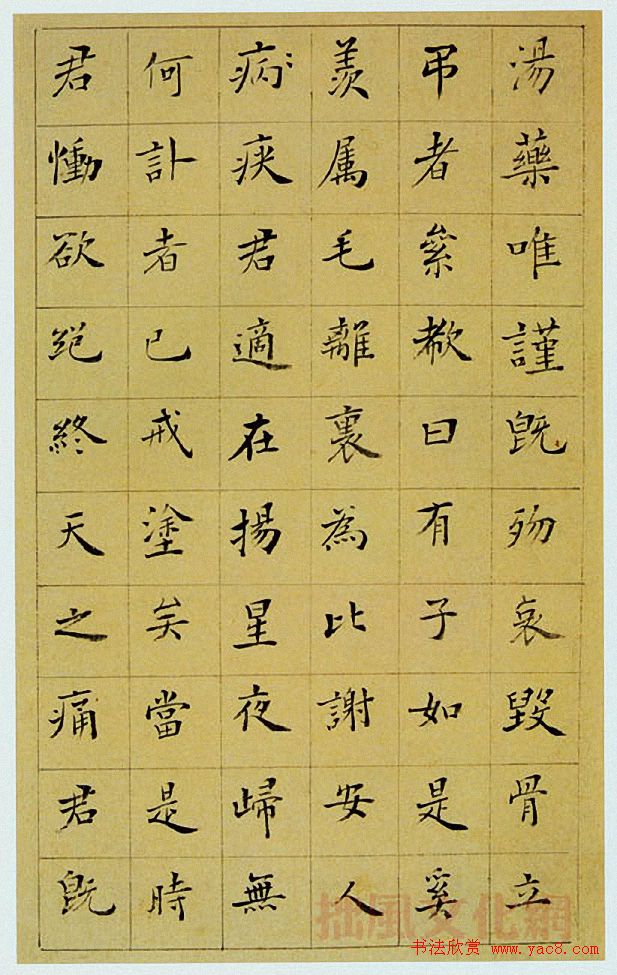 湯藥唯謹既歾哀毀骨立
弔者絫欷曰有子如是奚
羨属毛離裏為比謝安人
病疾君適在揚星夜歸無
何訃者已戒塗矣當是時
君慟欲絕終天之痛君既
拙風文化網
书法欣赏 www.yac8.com